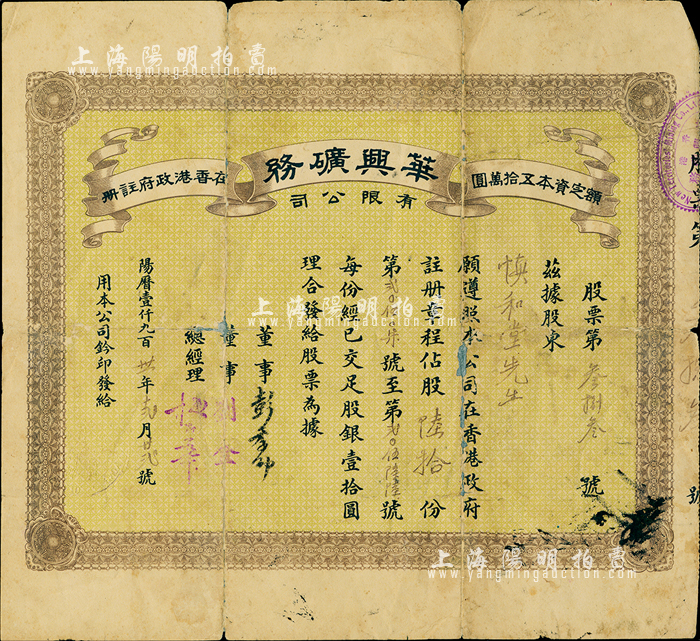 上海陽明拍賣
www.yangmingauction.com
額定資本五拾萬圓
華興礦務
有限公司
在香港政府註冊
股票第叁捌叁號
茲據股東
慎和堂先生
願遵照本公司在香港政府
註册章程佔股陸拾份
號至第
每份經已交足股銀壹拾圓
理合發給股票為據
董事
董事
總經理
陽曆壹仟九百卅年月號
用本公司鈐印發給
號
上海陽明拍賣
www.yangmingauction.com
上海陽明拍賣
www.yangmingauction.com